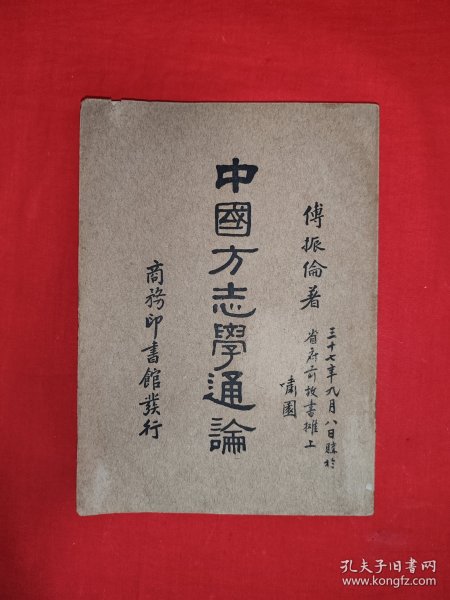 傅振倫著
三十七年九月八日購於
省府前故書攤上
嘯園
中國方志學通論
商務印書館發行
孔夫子旧书网
www.kongfz.com